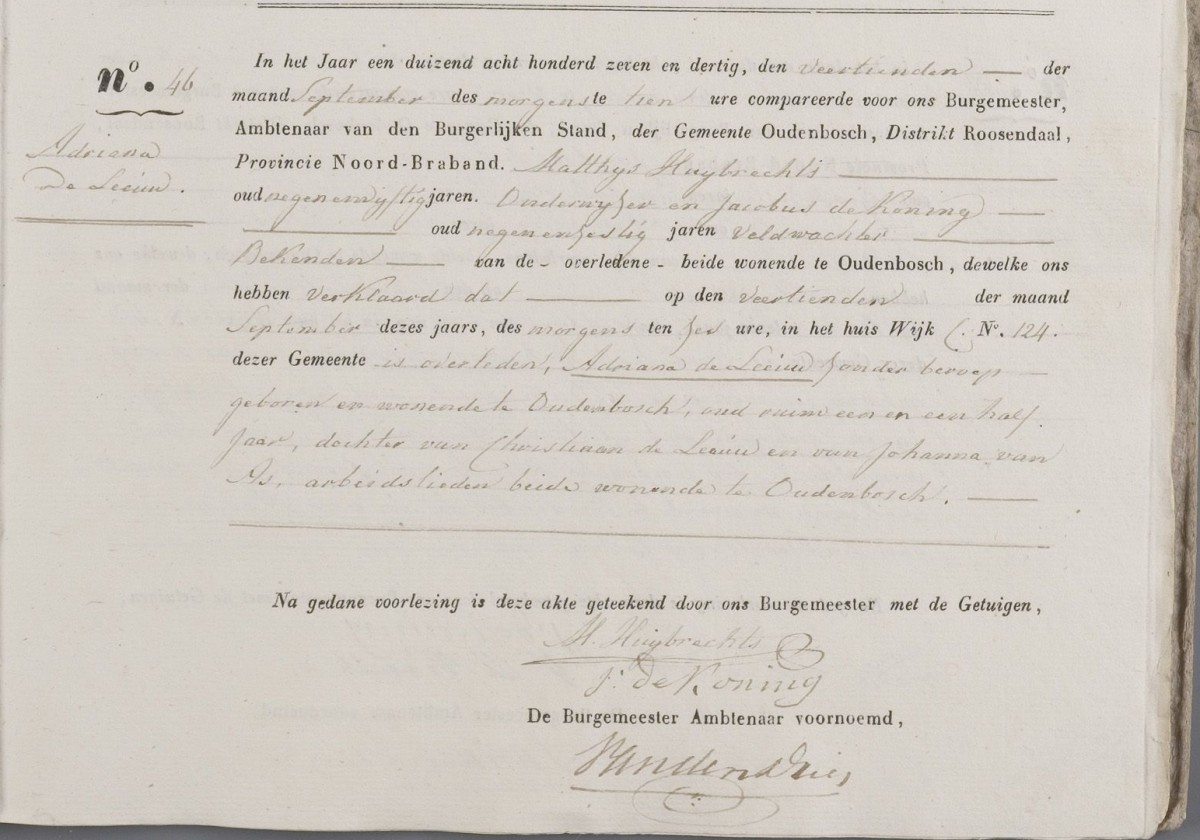 nº. 46
Adriana
De Leeuw.
In het Jaar een duizend acht honderd zeven en dertig, den veertienden — der
maand September des morgens te tien ure compareerde voor ons Burgemeester,
Ambtenaar van den Burgerlijken Stand, der Gemeente Oudenbosch, Distrikt Roosendaal,
Provincie Noord-Braband. Matthys Huybrechts —
oud negenenvyftig jaren. Onderwyzer en Jacobus de Koning —
— oud negenenzestig jaren veldwachter —
Bekenden — van de - overledene - beide wonende te Oudenbosch, dewelke ons
hebben verklaard dat — op den veertienden der maand
September dezes jaars, des morgens ten zes ure, in het huis Wijk C. Nº. 124.
dezer Gemeente is overleden, Adriana de Leeuw zonder beroep —
geboren en wonende te Oudenbosch, oud ruim een en een half
Jaar, dochter van Christiaan de Leeuw en van Johanna van
As, arbeidslieden beide wonende te Oudenbosch. —
Na gedane voorlezing is deze akte geteekend door ons Burgemeester met de Getuigen,
M. Huybrechts
J. de Koning
De Burgemeester Ambtenaar voornoemd,